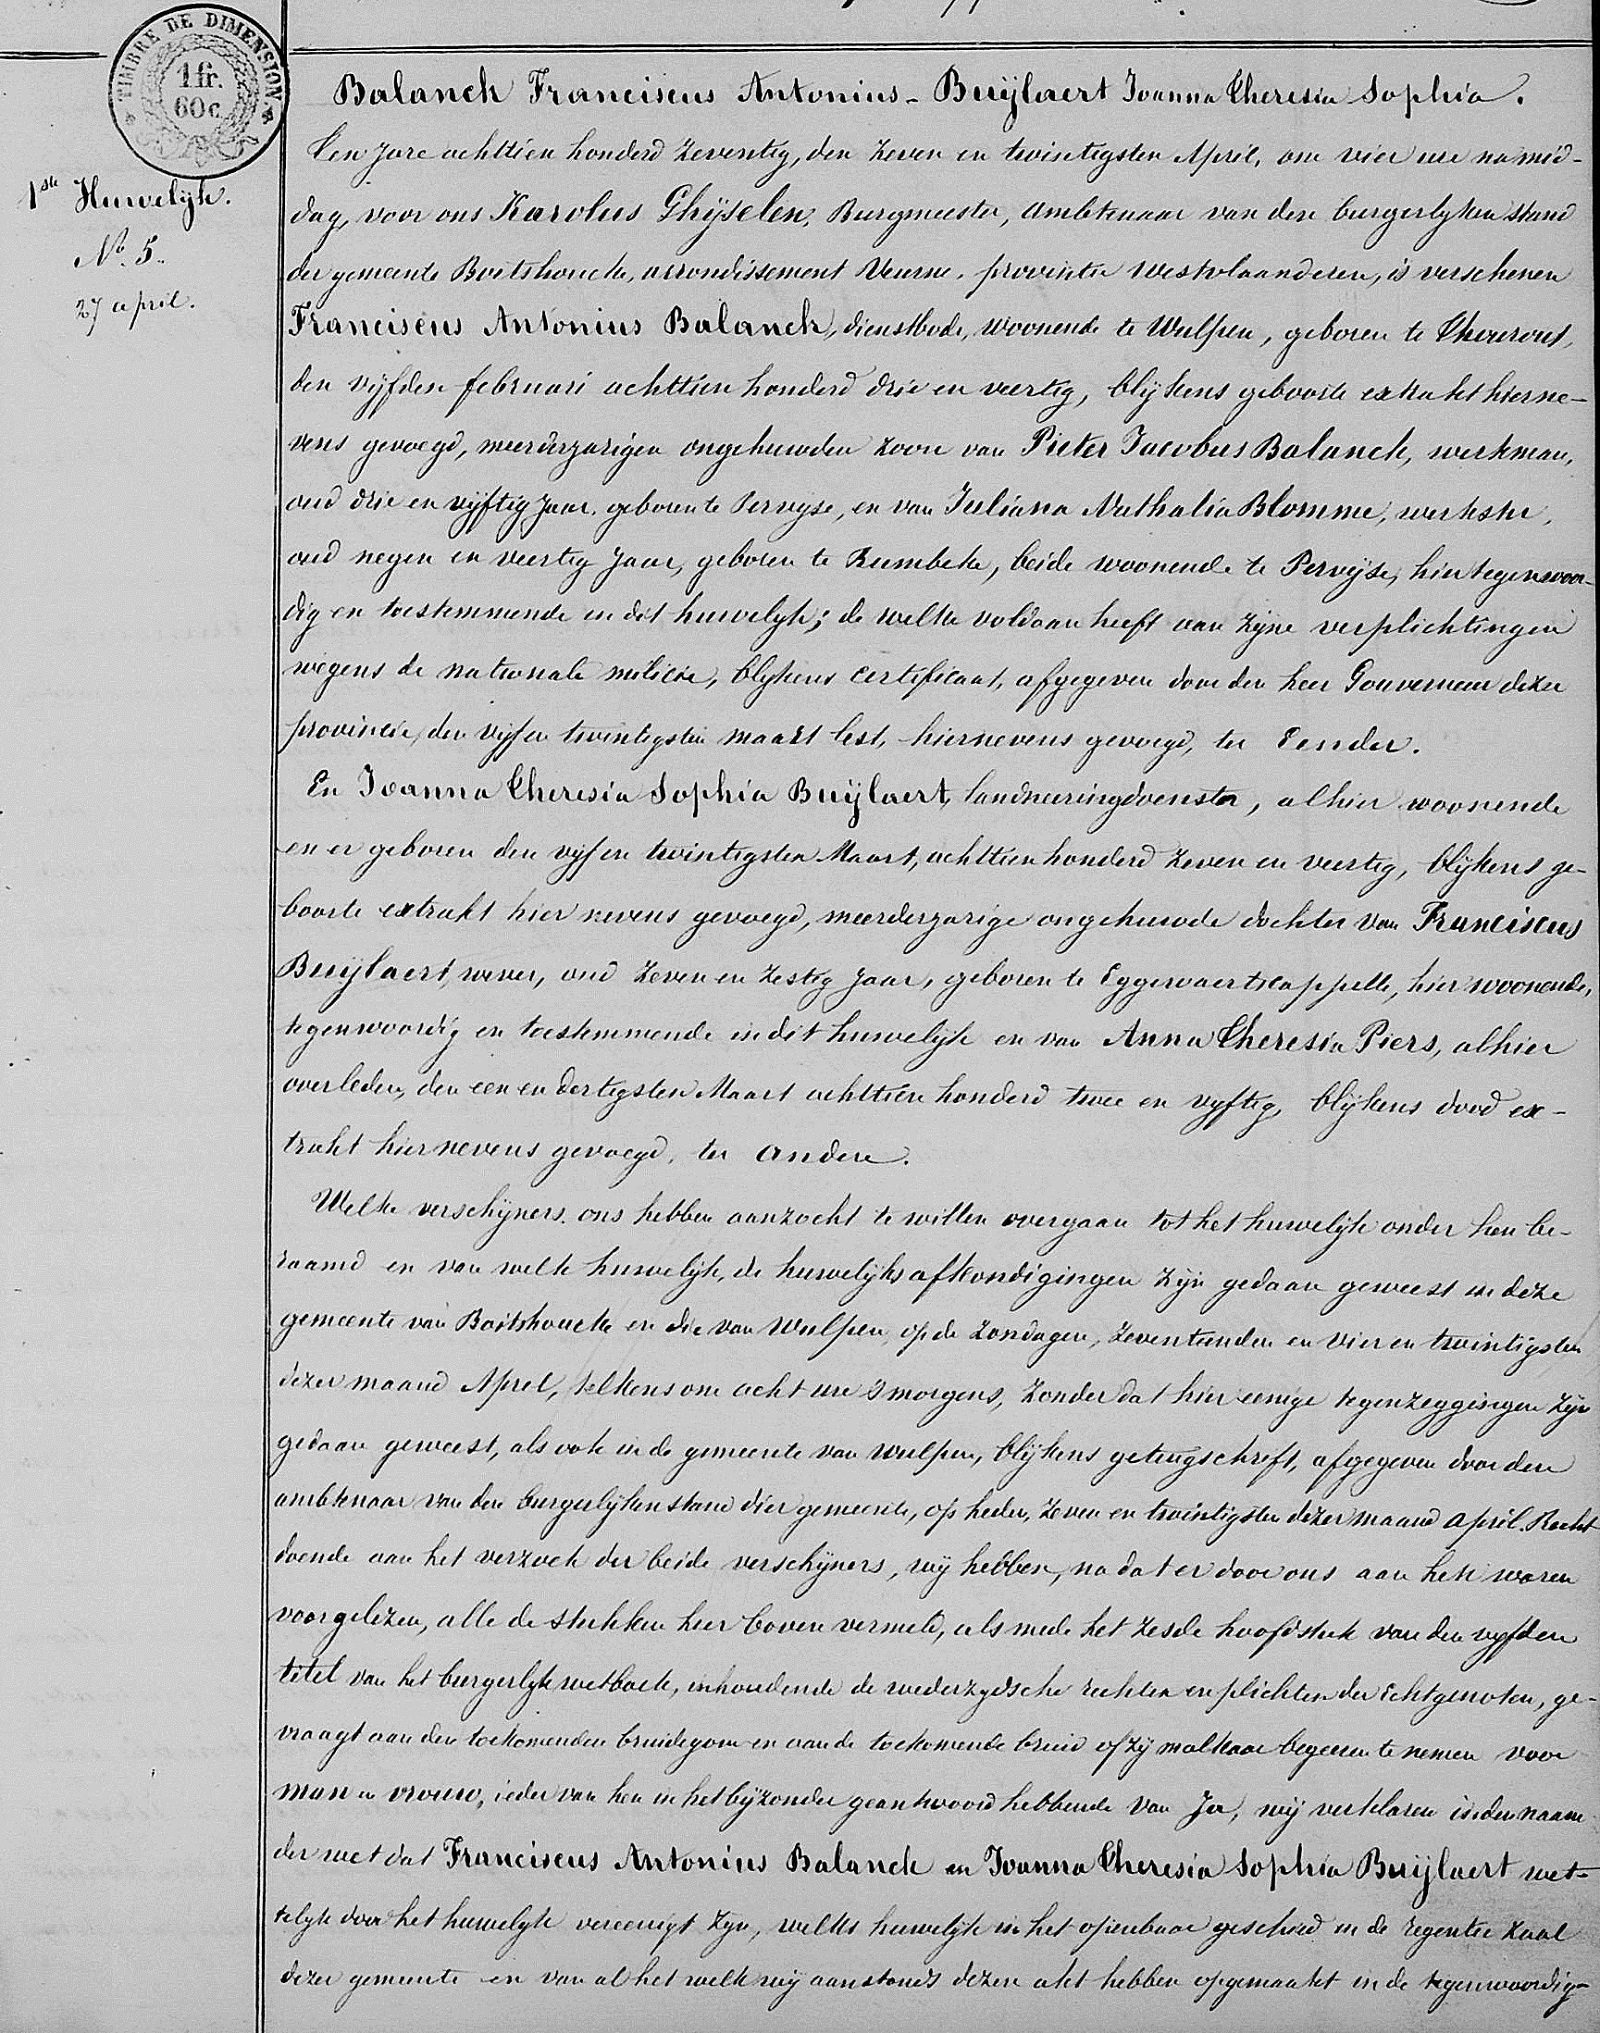 TIMBRE DE DIMENSION
1 fr.
60 c
1ste Huwelijk.
No. 5.
27 april.
Balanck Franciscus Antonius - Buijlaert Joanna Theresia Sophia.
Ten Jare achttien honderd Zeventig, den Zeven en twintigsten April, om vier ure namid-
dag, voor ons Karolus Ghijselen, Burgmeester, Ambtenaar van den burgerlyken stand
der gemeente Boitshoucke, arrondissement Veurne, provintie westvlaanderen, is verschenen
Franciscus Antonius Balanck, dienstbode, woonende te Wulpen, geboren te Thourout,
den vijfden februari achttien honderd drie en veertig, blijkens geboorte extrakt hierne-
vens gevoegd, meerderjarigen ongehuwden zoon van Pieter Jacobus Balanck, werkman,
oud drie en vijftig Jaar, geboren te Pervijse, en van Juliana Nathalia Blomme, werkster,
oud negen en veertig Jaar, geboren te Rumbeke, beide woonende te Pervijse, hier tegenwoor-
dig en toestemmende in dit huwelyk; de welke voldaan heeft aan zijne verplichtingen
wegens de nationale milicie, blykens certificaat, afgegeven door den heer Gouverneur dezer
provincie, den vijf en twintigsten maart lest, hiernevens gevoegd, ter Eender.
En Joanna Theresia Sophia Buijlaert, landneeringdoenster, alhier woonende
en er geboren den vijf en twintigsten Maart, achttien honderd Zeven en veertig, blijkens ge-
boorte extrakt hier nevens gevoegd, meerderjarige ongehuwde dochter van Franciscus
Buijlaert, wever, oud Zeven en Zestig Jaar, geboren te Eggewaertscappelle, hier woonende,
tegenwoordig en toestemmende in dit huwelijk en van Anna Theresia Piers, alhier
overleden, den een en dertigsten Maart achttien honderd twee en vyftig, blijkens dood ex-
trakt hiernevens gevoegd, ter andere.
Welke verschijners ons hebben aanzocht te willen overgaan tot het huwelijk onder hen be-
raamd en van welk huwelijk, de huwelijks afkondigingen Zijn gedaan geweest in deze
gemeente van Boitshoucke en die van Wulpen, op de Zondagen, Zeventienden en vier en twintigsten
dezer maand April, telkens om acht ure 's morgens, Zonder dat hier eenige tegenzeggingen Zijn
gedaan geweest, als ook in de gemeente van wulpen, blijkens getuigschrift, afgegeven door den
ambtenaar van den burgerlijken stand dier gemeente, op heden, Zeven en twintigsten dezer maand april. Recht
doende aan het verzoek der beide verschijners, wij hebben, na dat er door ons aan hen waren
voorgelezen, alle de stukken hier boven vermeld, als mede het Zesde hoofdstuk van den vyfden
titel van het burgerlyk wetboek, inhoudende de wederzydsche rechten en plichten der Echtgenoten, ge-
vraagt aan den toekomenden bruidegom en aan de toekomende bruid of zij malkaar begeeren te nemen voor
man en vrouw, ieder van hen in het bijzonder geantwoord hebbende van Ja, wij verklaren in den naam
der wet dat Franciscus Antonius Balanck en Joanna Theresia Sophia Buijlaert wet-
telijk door het huwelyk vereenigt Zijn, welks huwelijk in het openbaar geschied in de regentie zaal
dezer gemeente en van al het welk wij aanstonds dezen akt hebben opgemaakt in de tegenwoordig-